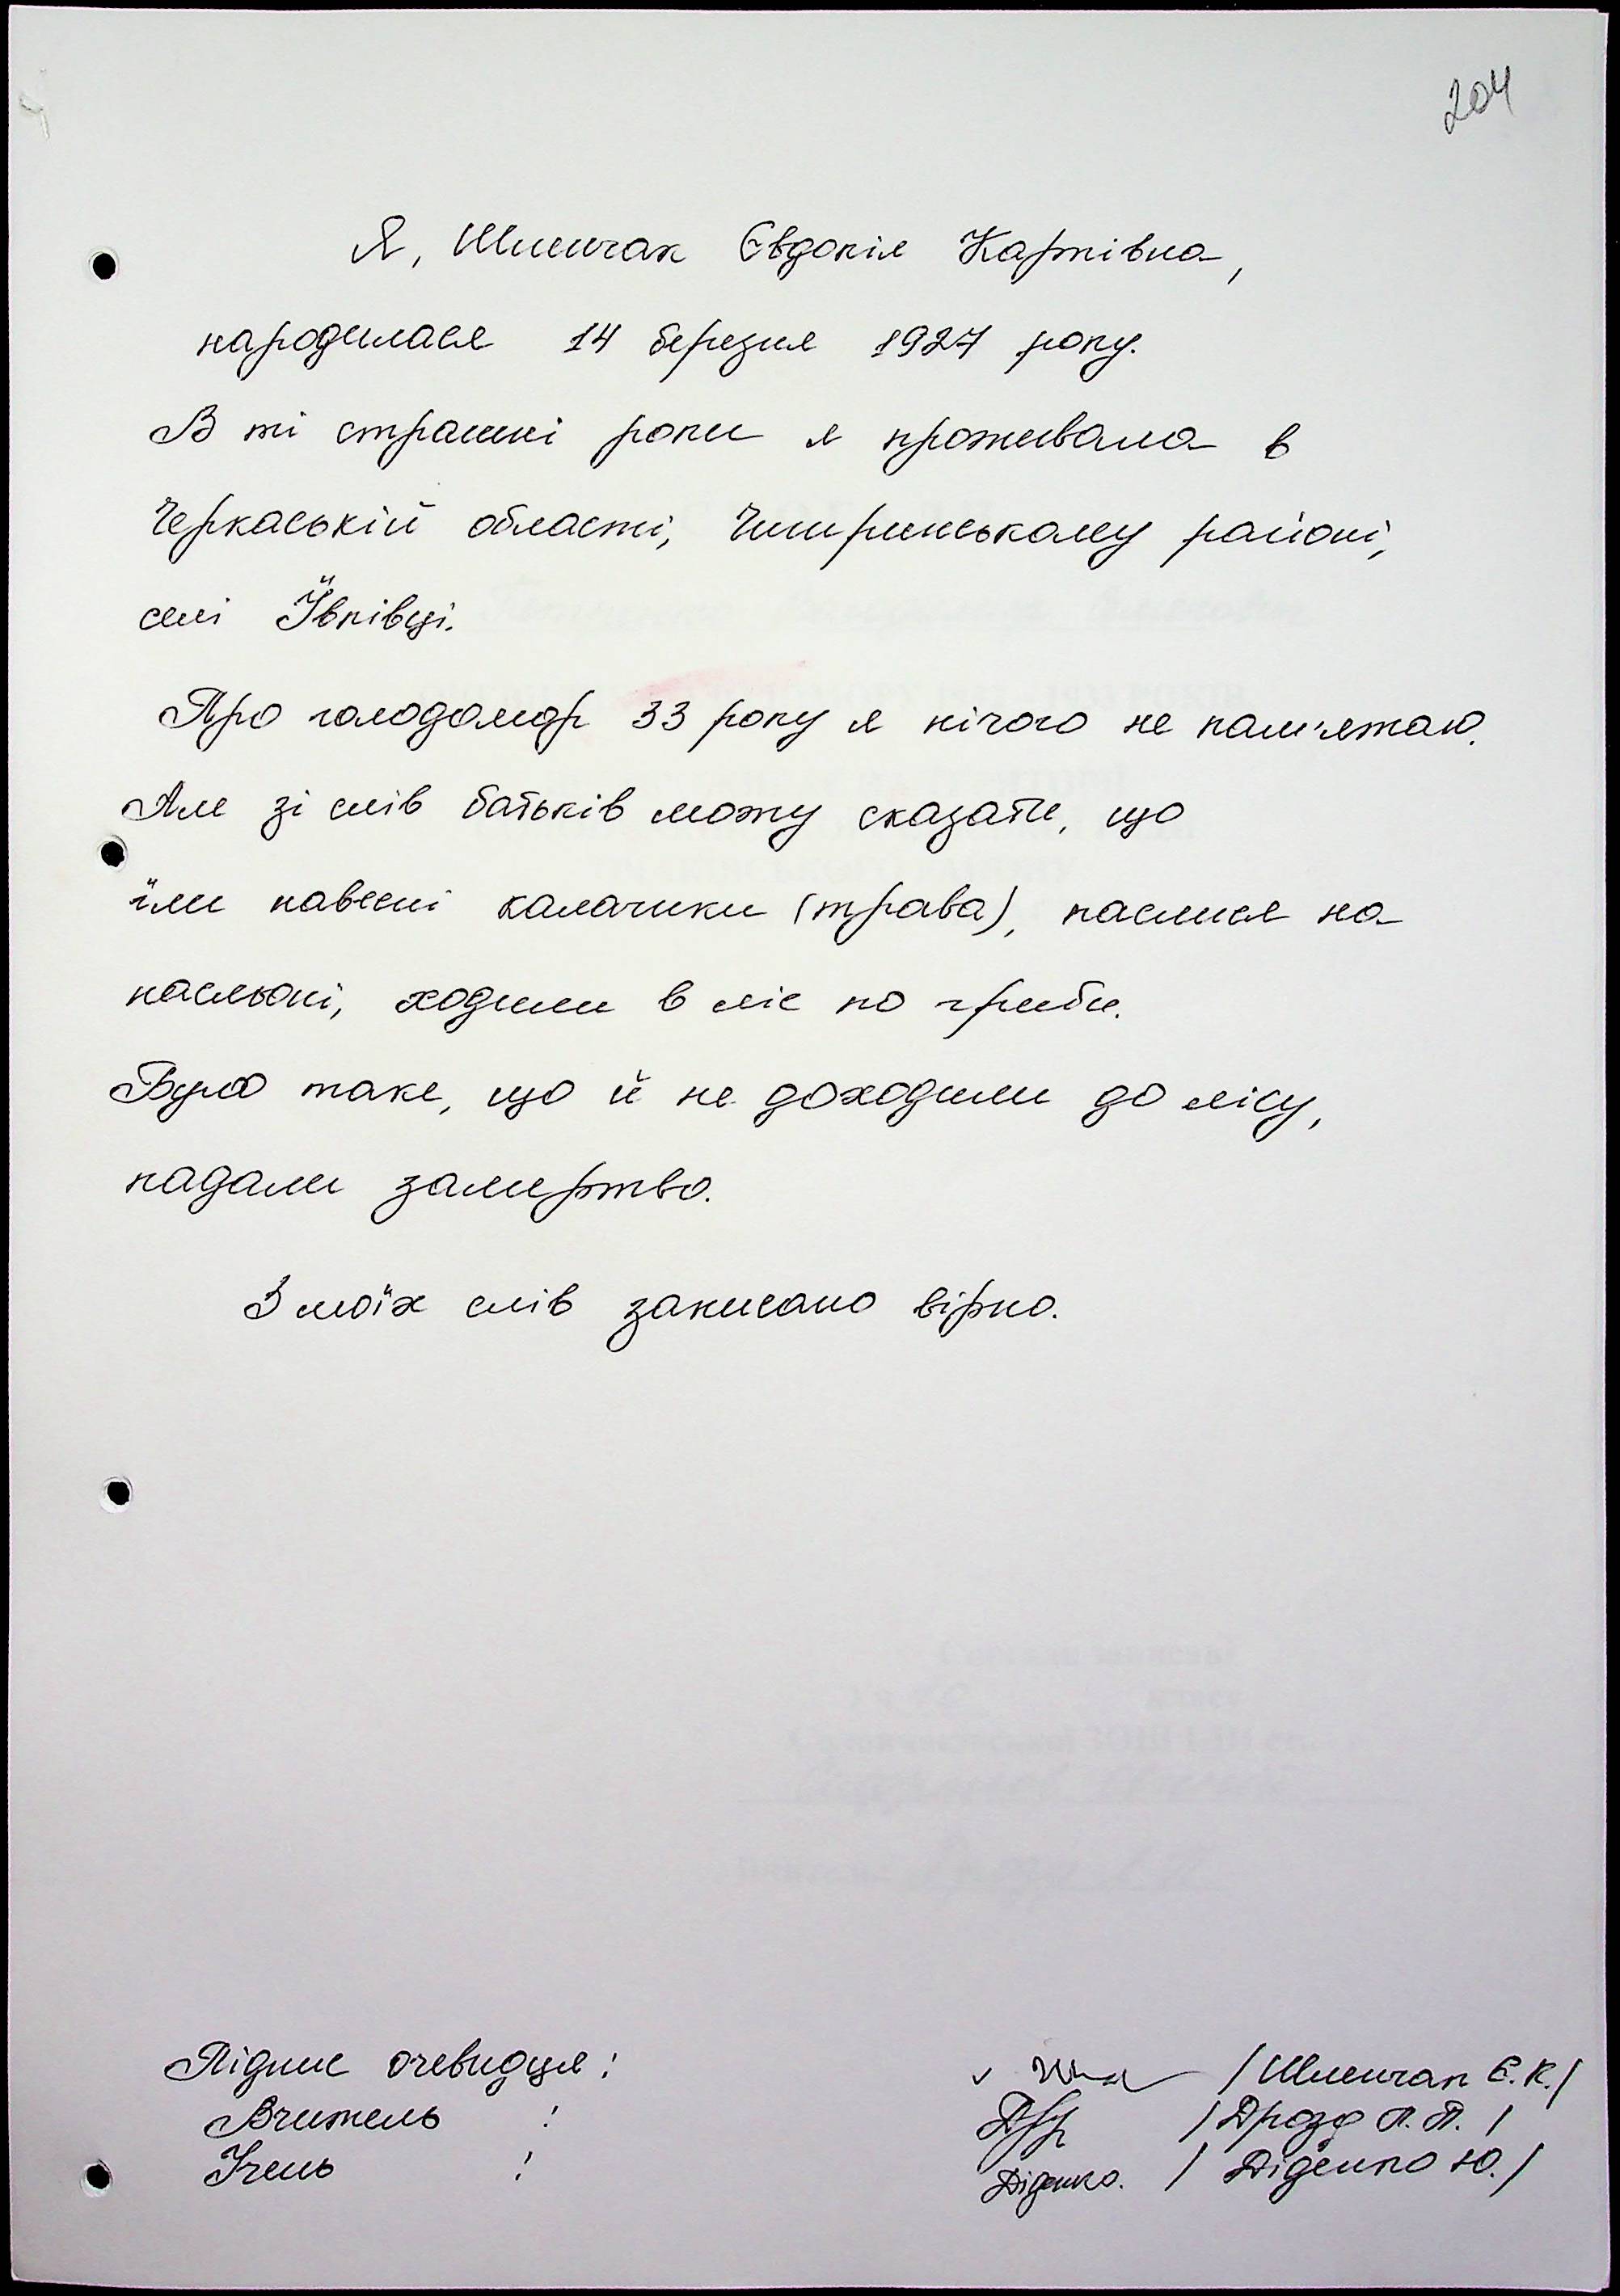 204
Я, Шпичак Євдокія Карпівна,
народилася 14 березня 1927 року.
В ті страшні роки я проживала в
Черкаській області, Чигиринському районі,
селі Ївківці.
Про голодомор 33 року я нічого не пам'ятаю.
Але зі слів батьків можу сказати, що
їли навесні калачики (трава), паслися на
пасльоні, ходили в ліс по гриби.
Було таке, що й не доходили до лісу,
падали замертво.
З моїх слів записано вірно.
Підпис очевидця: /Шпичак Є.К./
Вчитель : /Дрозд П.П./
Учень : Діденко. /Діденко Ю./